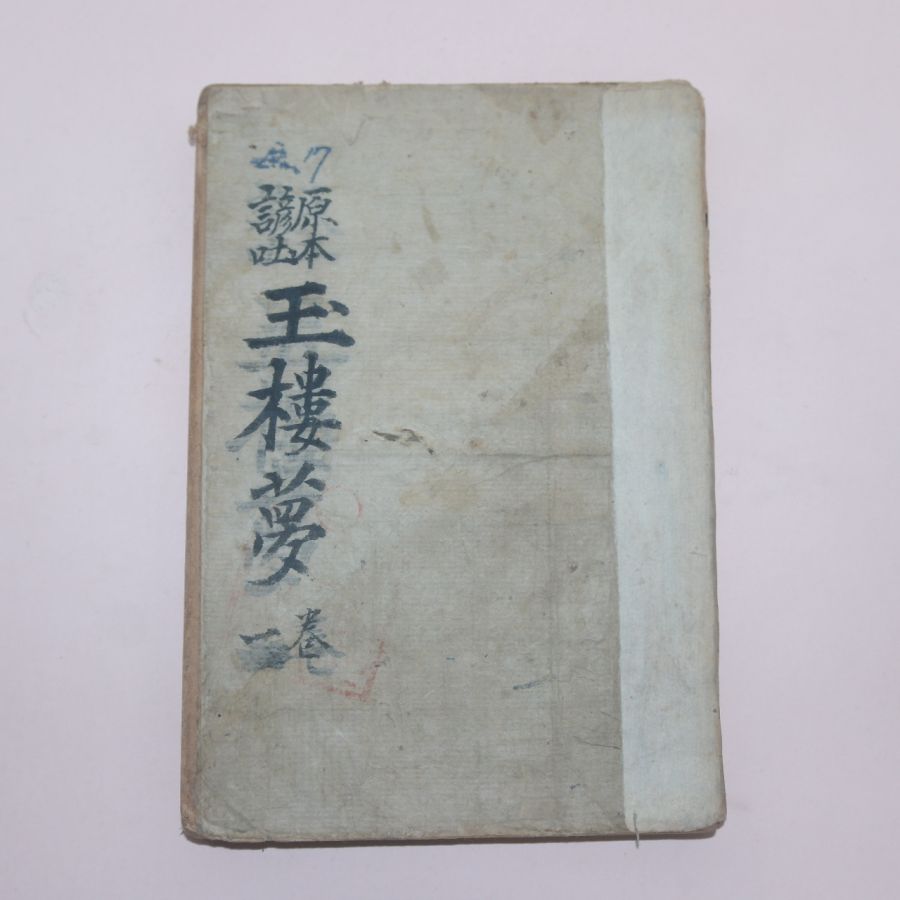 原本
諺吐
玉樓夢
卷
一